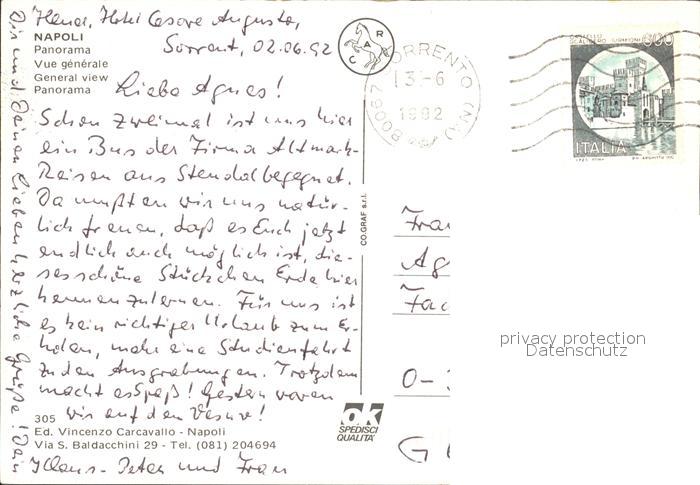 Hotel Cesare Augusto,
NAPOLI
Panorama
Vue générale
General view
Panorama
Sorrent, 02.06.92
Liebe Agnes!
Schon zweimal ist uns hier
ein Bus der Firma Altmark-
Reisen aus Stendal begegnet.
Da mußten wir uns natür-
lich freuen, daß es Euch jetzt
endlich auch möglich ist, die-
ses schöne Stückchen Erde hier
kennenzulernen. Für uns ist
es kein richtiger Urlaub zum Er-
holen, mehr eine Studienfahrt
zu den Ausgrabungen. Trotzdem
macht es Spaß! Gestern waren
wir auf dem Vesuv!
305
Ed. Vincenzo Carcavallo - Napoli
Via S. Baldacchini 29 - Tel. (081) 204694
Klaus-Peter und Frau
Dir und Deinen Lieben herzliche Grüße! Dein
CAR
CO.GRAF s.r.l.
ok
SPEDISCI
QUALITA'
80067 SORRENTO (NA)
3-6
1992
600
ITALIA
Fra
Ag
Fac
O-
G
privacy protection
Datenschutz